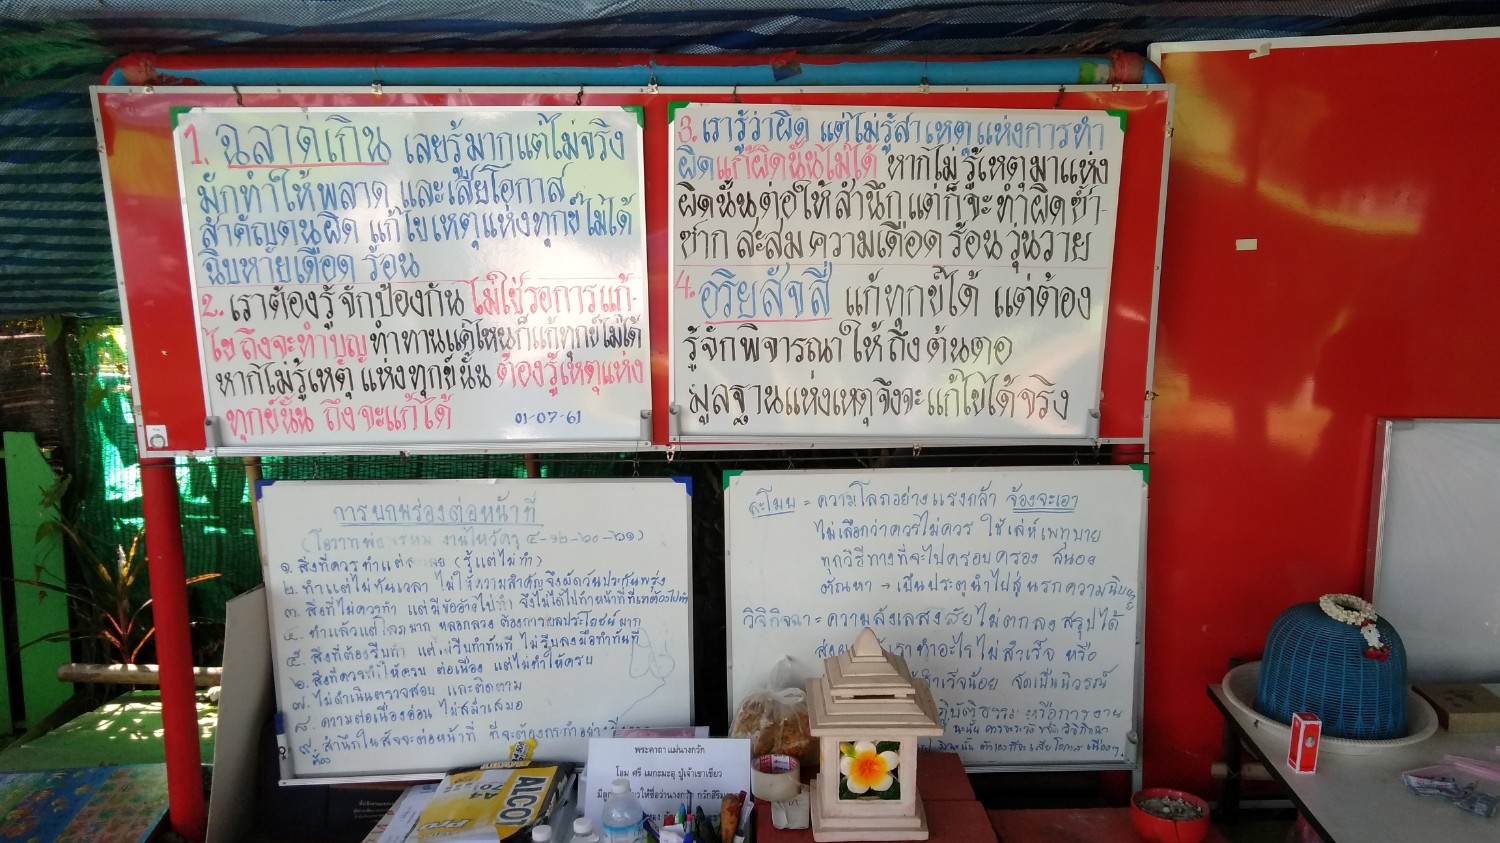 1. ฉลาดเกิน เลยรู้มากแต่ไม่จริง
มักทำให้พลาด และเสียโอกาส
สำคัญตนผิด แก้ไขเหตุแห่งทุกข์ไม่ได้
ฉิบหายเดือด ร้อน
2. เราต้องรู้จักป้องกัน ไม่ใช่รอการแก้-
ไข ถึงจะทำบุญ ทำทานแค่ไหนก็แก้ทุกข์ไม่ได้
หากไม่รู้เหตุ แห่งทุกข์นั้น ต้องรู้เหตุแห่ง
ทุกข์นั้น ถึงจะแก้ได้ 01-07-61
3. เรารู้ว่าผิด แต่ไม่รู้สาเหตุแห่งการทำ
ผิดแก้ผิดนั้นไม่ได้ หากไม่รู้เหตุมาแห่ง
ผิดนั้นต่อให้สำนึกแต่ก็จะทำผิดซ้ำ-
ซาก สะสมความเดือด ร้อน วุ่นวาย
4. อริยสัจสี่ แก้ทุกข์ได้ แต่ต้อง
รู้จักพิจารณาให้ถึงต้นตอ
มูลฐานแห่งเหตุจึงจะแก้ไขได้จริง
การบกพร่องต่อหน้าที่
๑. สิ่งที่ควรทำแต่ (รู้แต่ไม่ทำ)
๒. ทำแต่ไม่ทันเวลา ไม่ให้ความสำคัญจึงผัดวันประกันพรุ่ง
๓. สิ่งที่ไม่ควรทำ แต่มีข้ออ้างไปทำ จึงไม่ได้ไปทำหน้าที่ที่เราต้องไปทำ
๔. ทำแล้วแต่โลภมาก หลอกลวง ต้องการผลประโยชน์มาก
๕. สิ่งที่ต้องรีบทำ แต่ไม่รีบทำทันที ไม่รีบลงมือทำทันที
๖. สิ่งที่ควรทำให้ครบ ต่อเนื่อง แต่ไม่ทำให้ครบ
๗. ไม่ดำเนินตรวจสอบ และติดตาม
๘. ความต่อเนื่องอ่อน ไม่สม่ำเสมอ
๙. สำนึกในสัจจะต่อหน้าที่ ที่จะต้องกระทำอย่าง
ละโมบ = ความโลภอย่างแรงกล้า จ้องจะเอา
ไม่เลือกว่าควรไม่ควร ใช้เล่ห์เพทุบาย
ทุกวิธีทางที่จะไปครอบครอง สนอง
ตัณหา → เป็นประตูนำไปสู่นรกความฉิบหาย
วิจิกิจฉา = ความลังเลสงสัยไม่ตกลงสรุปได้
เราทำอะไรไม่สำเร็จ หรือ
สำเร็จน้อย จัดเป็นนิวรณ์
พระคาถาแม่นางกวัก
โอม ศรี เมกะมะอุ ปู่เจ้าเขาเขียว
ALCO
A4
70
PRO